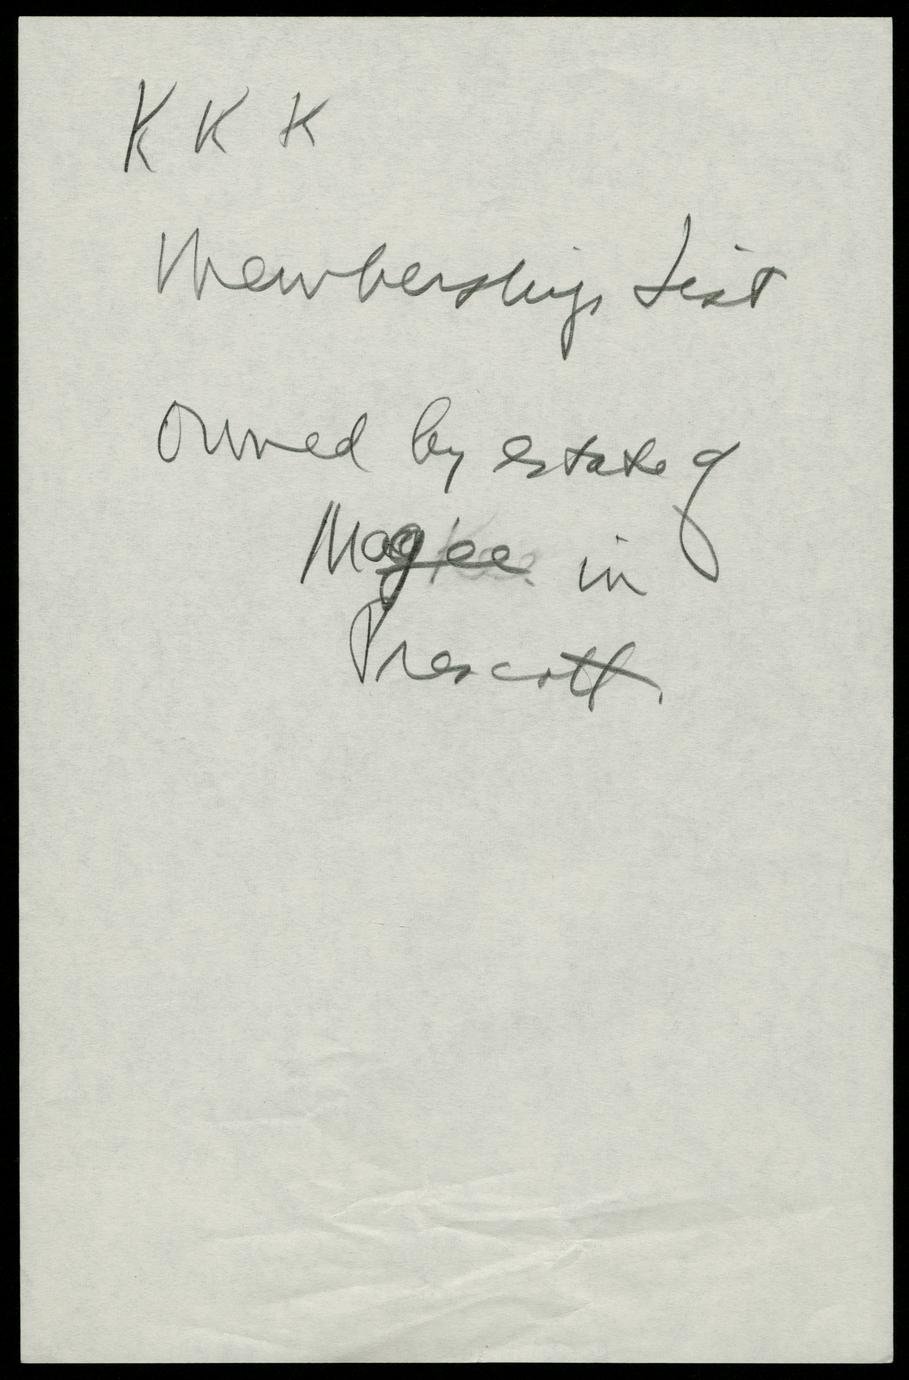 K K K
Membership List
Owned by estate of
Magee in
Prescott.